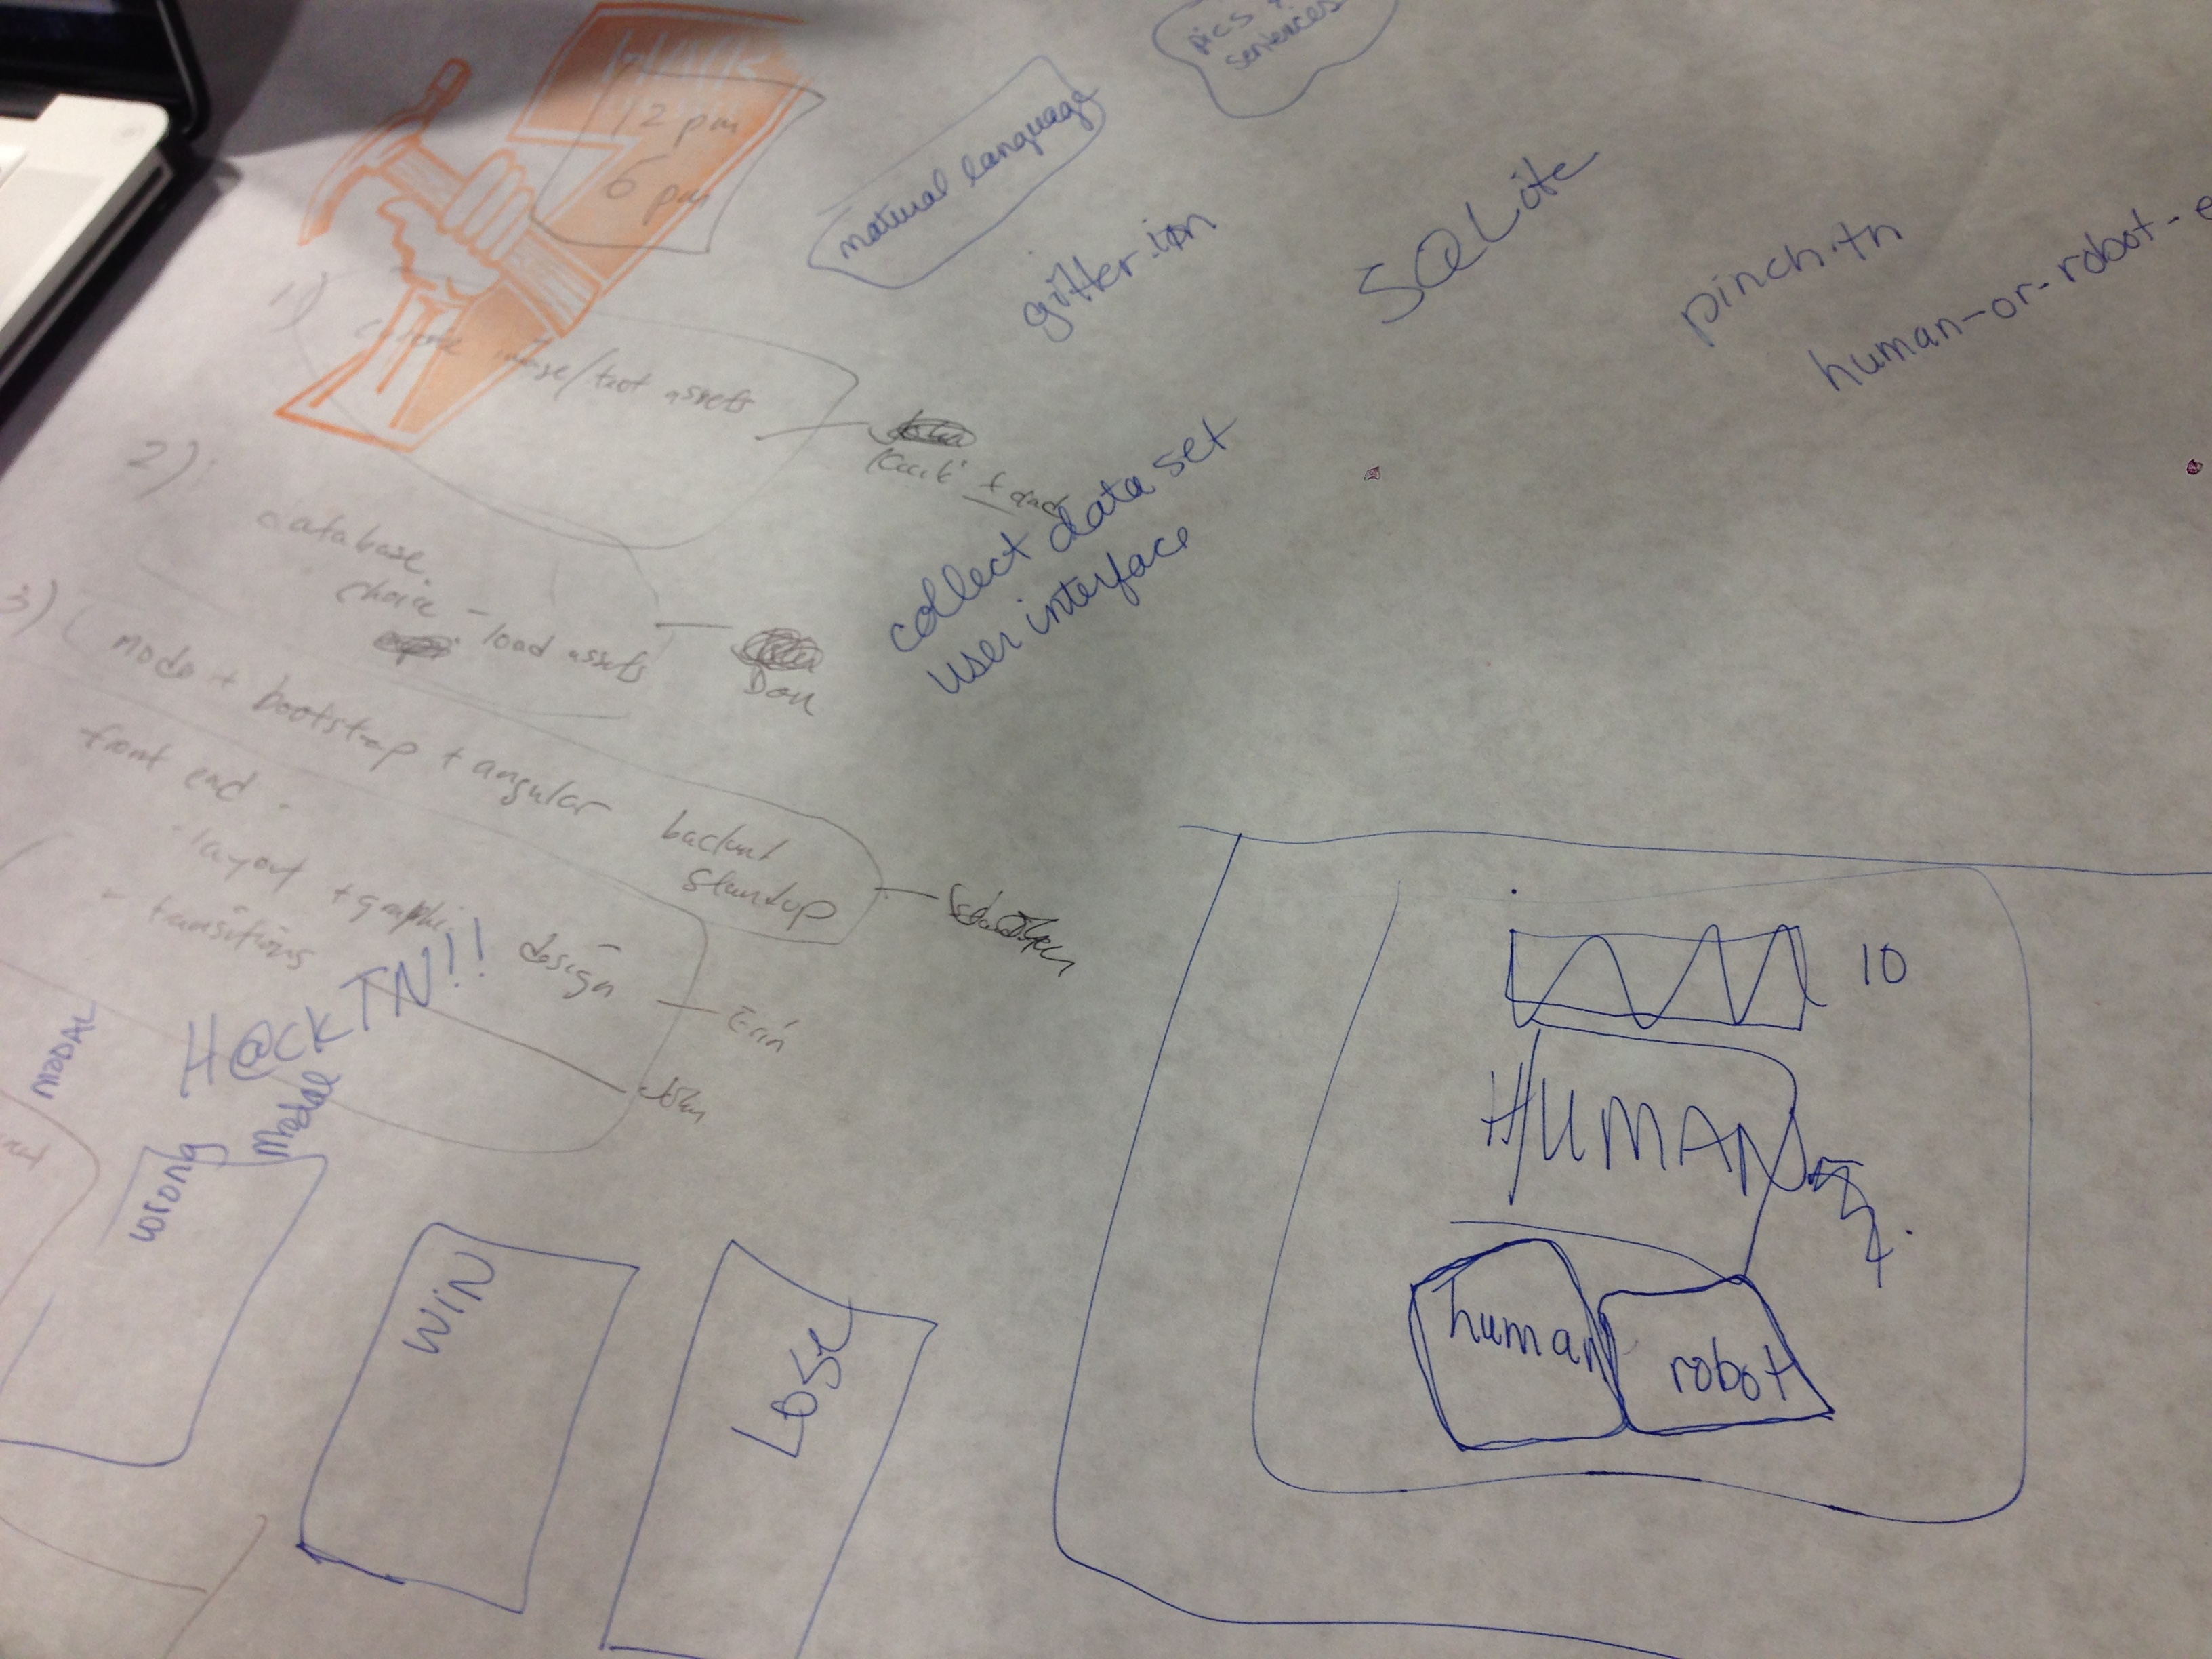 pics
sentences
12 pm
6 pm
natural language
gitter.im
SQLite
pinch.tn
human-or-robot-
1)
image/text assets
2)
database
choice - load assets
Don
collect data set
user interface
3)
node + bootstrap + angular
standup
front end -
layout + graphic design
- transitions
Erin
John
H@ckTN!!
MODAL
modal
wrong
WIN
LOSE
10
HUMAN
human
robot